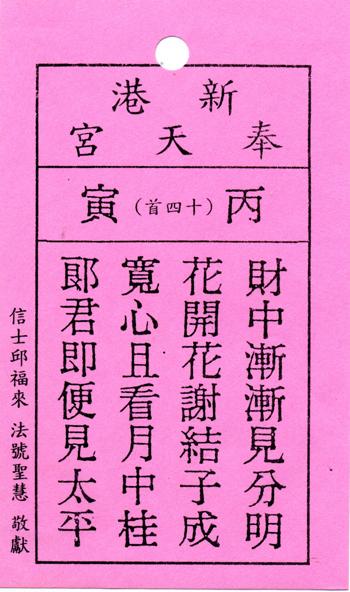 新港
奉天宮
丙（十四首）寅
財中漸漸見分明
花開花謝結子成
寬心且看月中桂
郎君即便見太平
信士邱福來 法號聖慧 敬獻